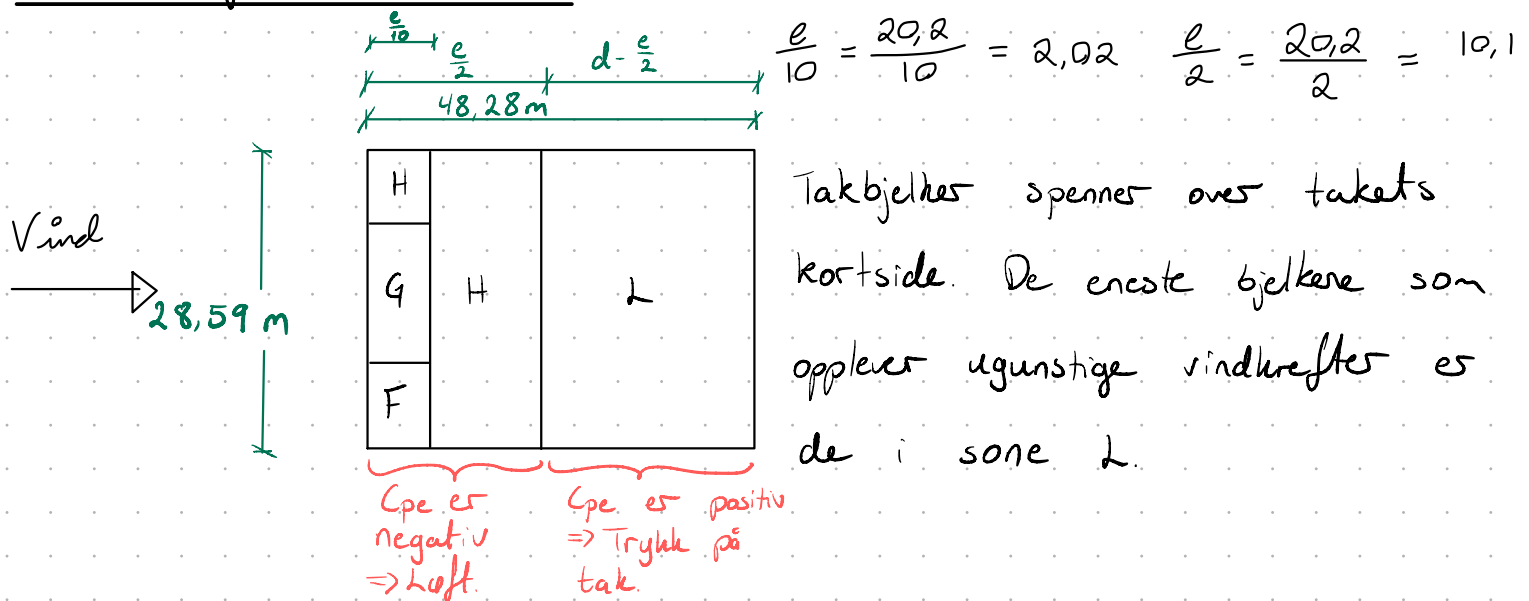 e/10
e/2
d - e/2
48,28 m
e/10 = 20,2/10 = 2,02 e/2 = 20,2/2 = 10,1
Vind
28,59 m
H
G
F
H
L
Takbjelker spenner over takets
kortside. De eneste bjelkene som
opplever ugunstige vindkrefter er
de i sone L.
Cpe er
negativ
=> Løft.
Cpe er positiv
=> Trykk på
tak.